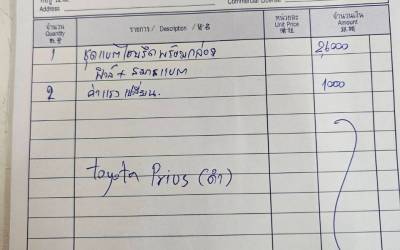 Address
Commercial License
จำนวน รายการ / Description / 摘要 หน่วยละ จำนวนเงิน
Quantity Unit Price Amount
数量 單價 銀碼
1 ชุดแบตไฮบริดพร้อมกล่อง 26000
ฟิวส์ +
2 ค่าแรง เปลี่ยน. 1000
toyota Prius (ดำ)